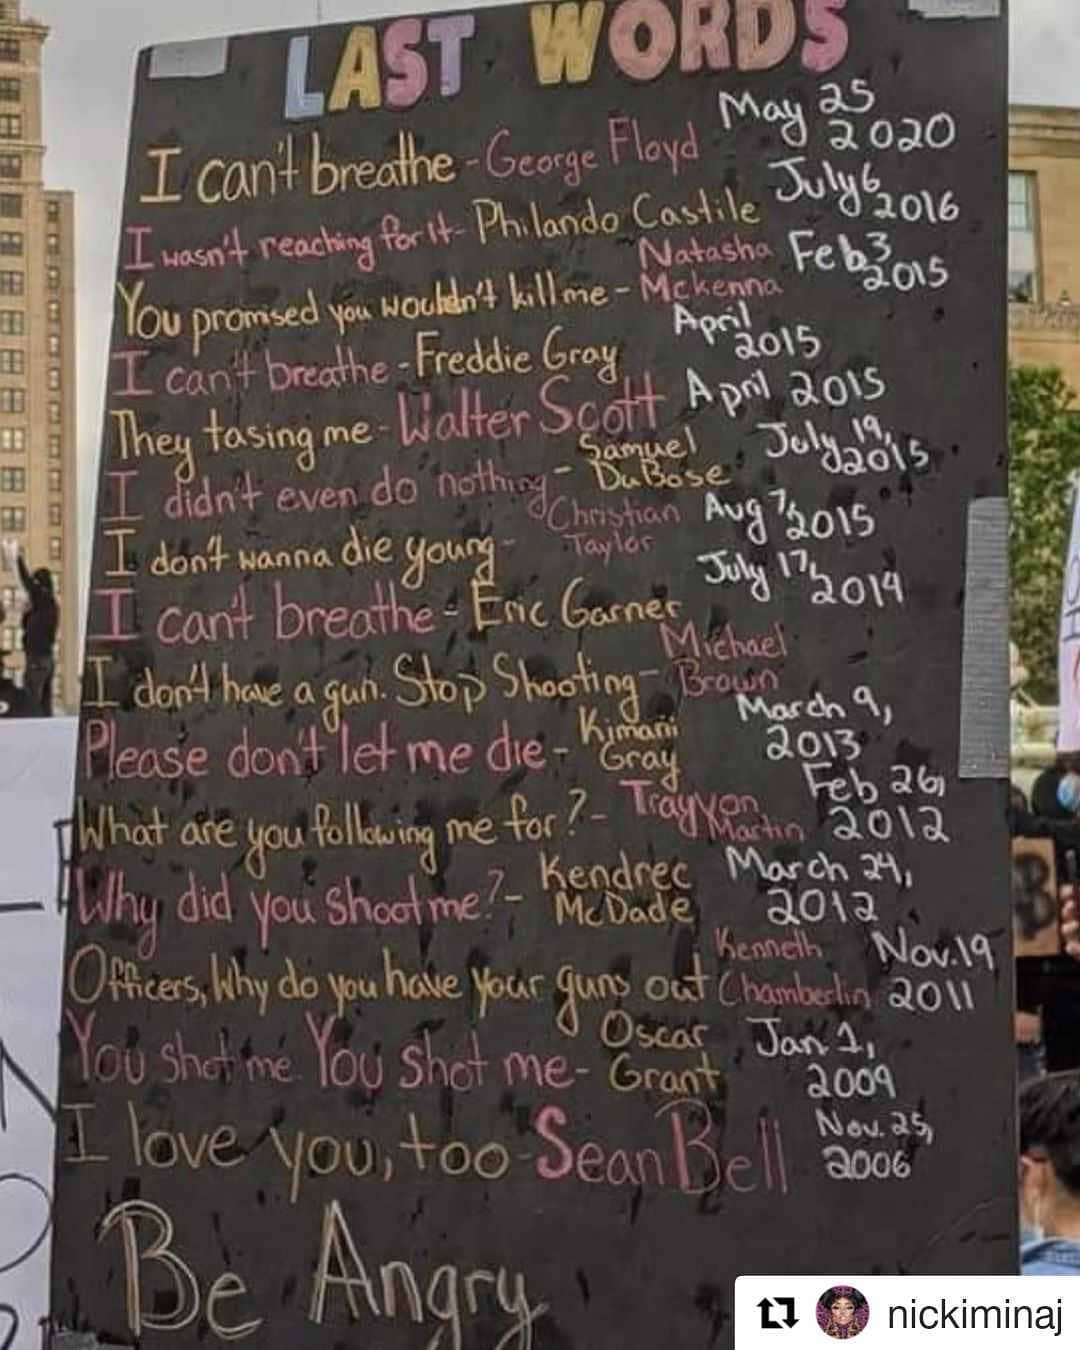 LAST WORDS
I can't breathe - George Floyd May 25 2020
I wasn't reaching for it - Philando Castile July 6 2016
You promised you wouldn't kill me - Natasha Mckenna Feb 3 2015
I can't breathe - Freddie Gray April 2015
They tasing me - Walter Scott April 2015
I didn't even do nothing - Samuel DuBose July 19, 2015
I don't wanna die young - Christian Taylor Aug 7, 2015
I can't breathe - Eric Garner July 17, 2014
I don't have a gun. Stop Shooting - Michael Brown
Please don't let me die - Kimani Gray March 9, 2013
What are you following me for? - Trayvon Martin Feb 26, 2012
Why did you shoot me? - Kendrec McDade March 24, 2012
Officers, Why do you have your guns out Kenneth Chamberlin Nov. 19 2011
You shot me You shot me - Oscar Grant Jan 1, 2009
I love you, too - Sean Bell Nov. 25, 2006
Be Angry
nickiminaj